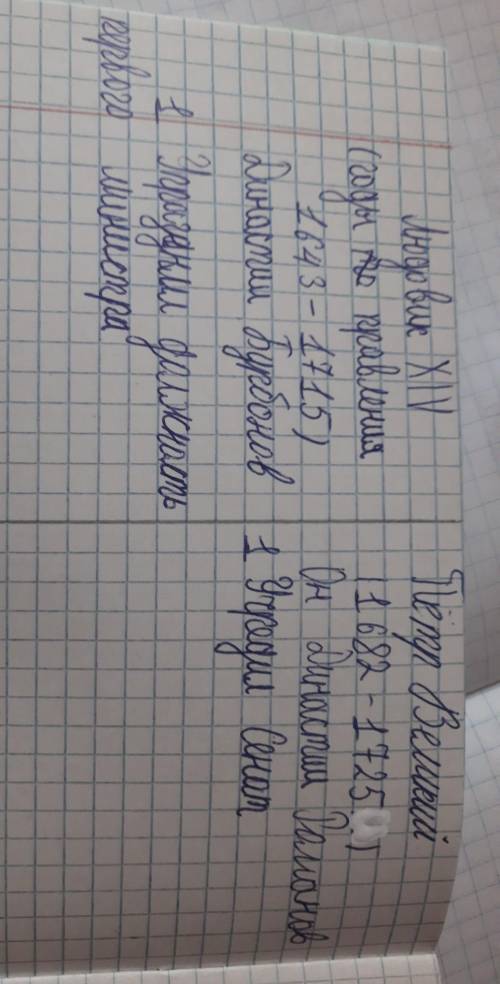 Людовик XIV
(годы правления
1643 - 1715)
Династии Бурбонов
1 Упразднил должность
первого министра
Пётр Великий
(1682 - 1725)
Он династии Романов
1 Учредил Сенат